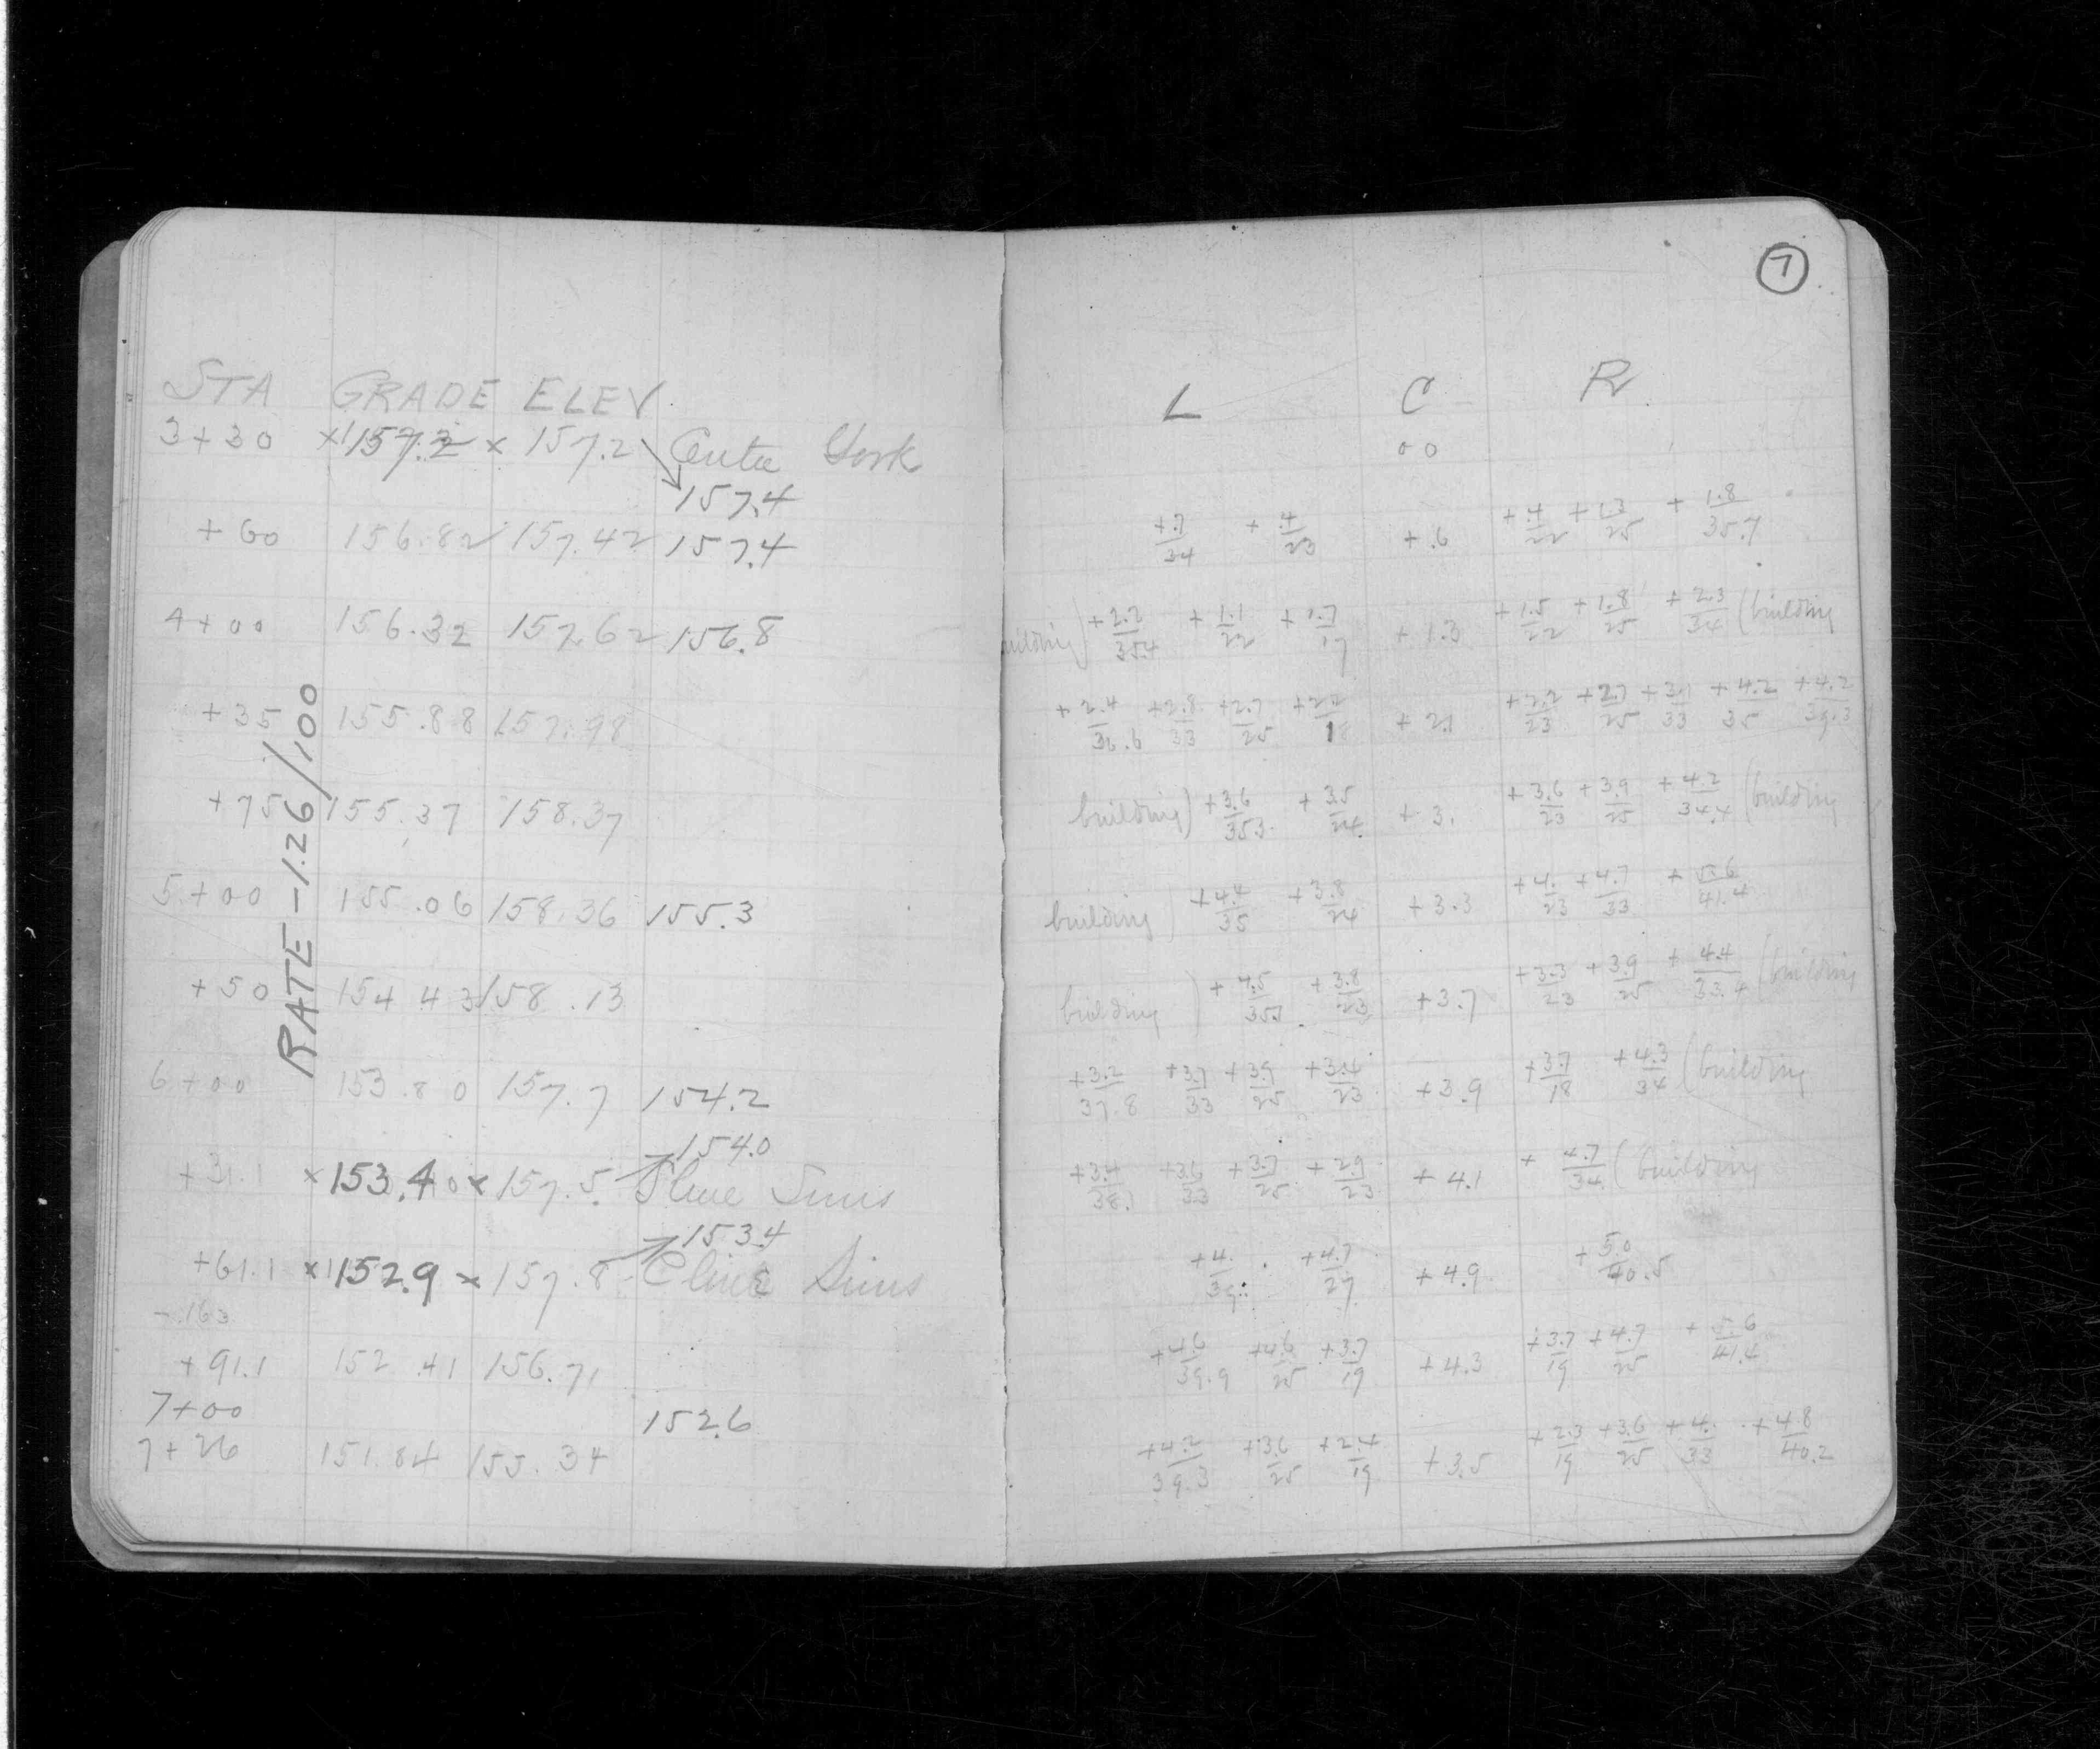 7
STA GRADE ELEV.
L C R
3+30 x 157.2 x 157.2 Center York
00
157.4
+60 156.82 157.42 157.4
+.7/34 +.4/23 +.6 +.4/22 +1.3/25 +1.8/35.7
4+00 156.32 157.62 156.8
building) +2.2/35.4 +1.1/22 +1.7/17 +1.3 +1.5/22 +1.8/25 +2.3/34 (building
+35 155.88 157.98
+2.4/36.6 +2.8/33 +2.7/25 +2.2/18 +2.1 +2.2/23 +2.7/25 +3.1/33 +4.2/35 +4.2/39.3
+75 155.37 158.37
building) +3.6/35.3 +3.5/24 +3. +3.6/23 +3.9/25 +4.2/34.4 (building
5+00 155.06 158.36 155.3
building) +4.4/35 +3.8/24 +3.3 +4./23 +4.7/33 +5.6/41.4
+50 154.43 158.13
building) +4.5/35.1 +3.8/23 +3.7 +3.3/23 +3.9/25 +4.4/33.4 (building
RATE -1.26/100
6+00 153.80 157.7 154.2
+3.2/37.8 +3.7/33 +3.9/25 +3.4/23 +3.9 +3.7/18 +4.3/34 (building
154.0
+31.1 x 153.40 x 157.5 Sline Sims
+3.4/38.1 +3.6/33 +3.7/25 +2.9/23 +4.1 +4.7/34 (building
153.4
+61.1 x 152.9 x 157.8 Cline Sims
+4./39 +4.7/27 +4.9 +5.0/40.5
-.163
+91.1 152.41 156.71
+4.6/39.9 +4.6/25 +3.7/19 +4.3 +3.7/19 +4.7/25 +5.6/41.4
7+00 152.6
7+26 151.84 155.34
+4.2/39.3 +3.6/25 +2.4/19 +3.5 +2.3/19 +3.6/25 +4./33 +4.8/40.2